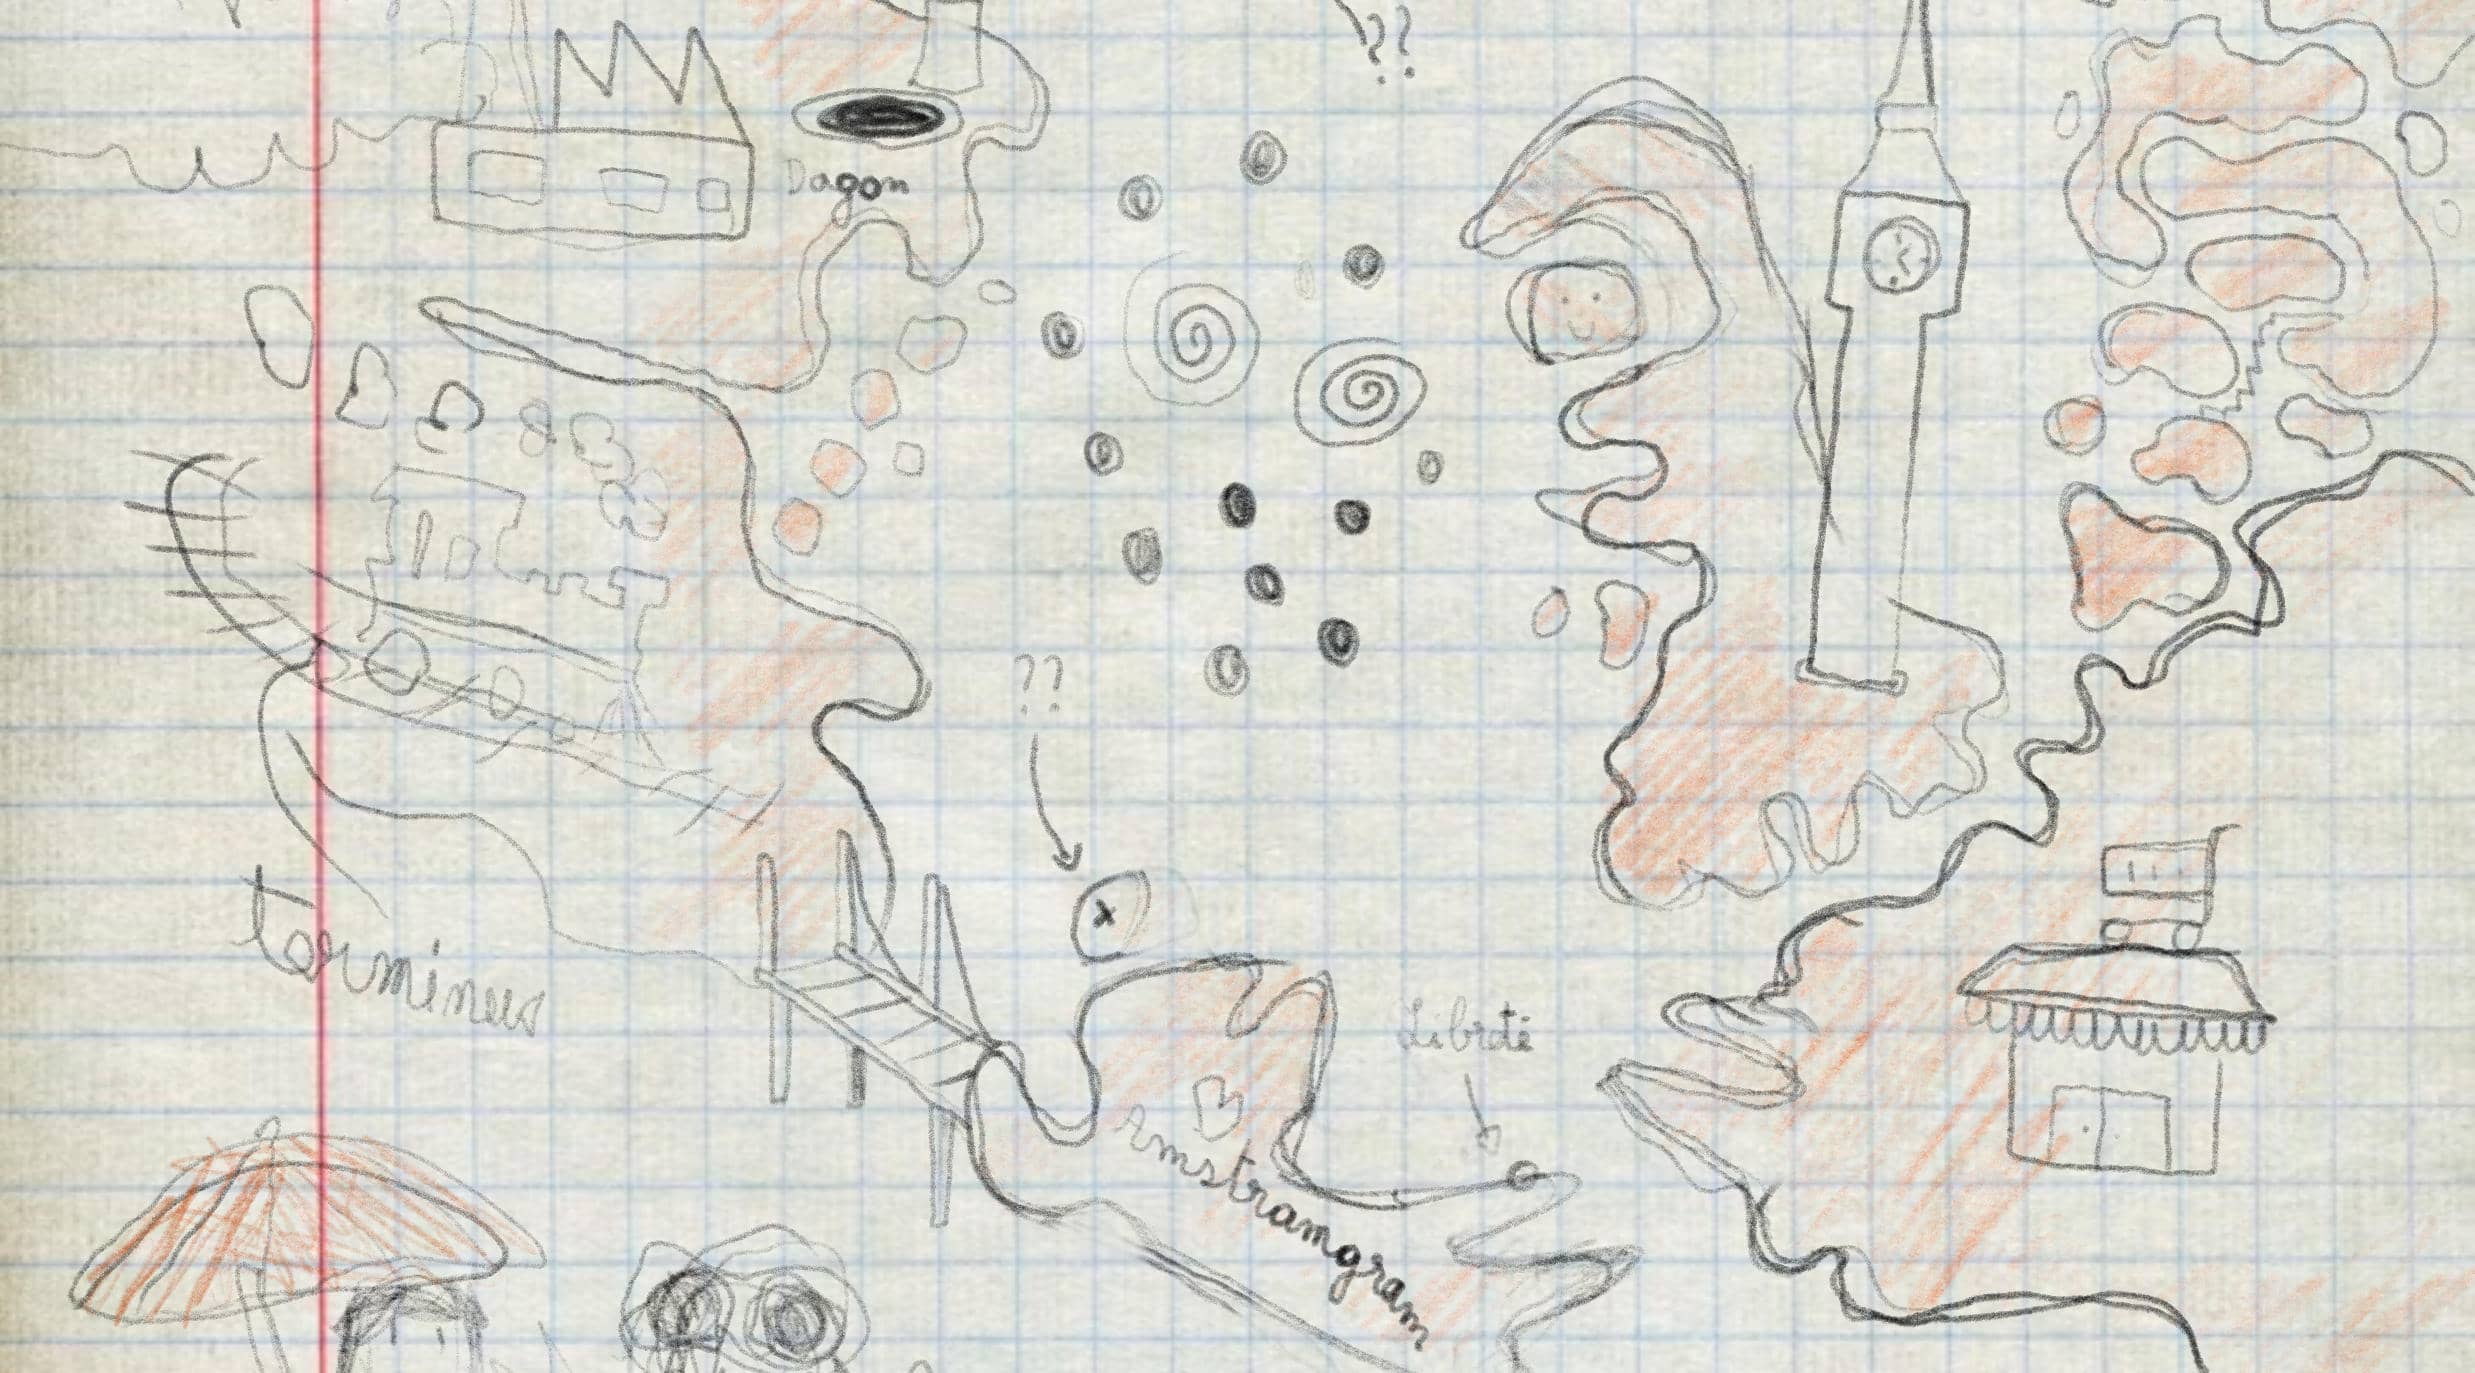 ??
Dagon
??
Terminus
Librté
Amstramgram